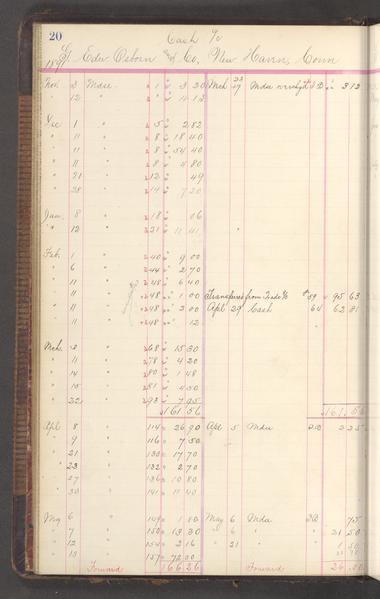 20
Cash a/c
G. Edw. Osborn and Co, New Haven, Conn
1891
Nov. 3 Mdse 1 3 20 Mch 17 Mdse 3 12
" 12 " 11 13
Dec 1 " 5 2 82
" 11 " 8 18 40
" 11 " 8 54 40
" 11 " 8 4 80
" 21 " 12 49
" 28 " 14 7 20
Jan. 8 " 18 06
" 12 " 21 11 41
Feb. 1 " 40 9 00
" 6 " 44 2 70
" 11 " 48 6 40
" 11 " 48 1 00 Transferred from Trade a/c 59 95 63
" 11 " 48 3 00 Apl 29 Cash 64 62 81
" 11 " 48 12
Mch. 2 " 68 15 30
" 11 " 78 4 20
" 14 " 80 1 48
" 15 " 81 4 50
" 22 " 93 7 95
161 56 161 56
Apl 8 114 26 90 Apl 5 Mdse 3 35
" 9 116 7 50
" 21 130 17 70
" 23 132 2 70
" 27 136 10 80
" 30 141 11 40
My 6 149 1 80 May 6 Mdse 75
" 7 150 13 30 " 6 " 21 50
" 12 154 2 16 " 21 " 1 50
" 13 157 72 00
Forward 166 26 Forward